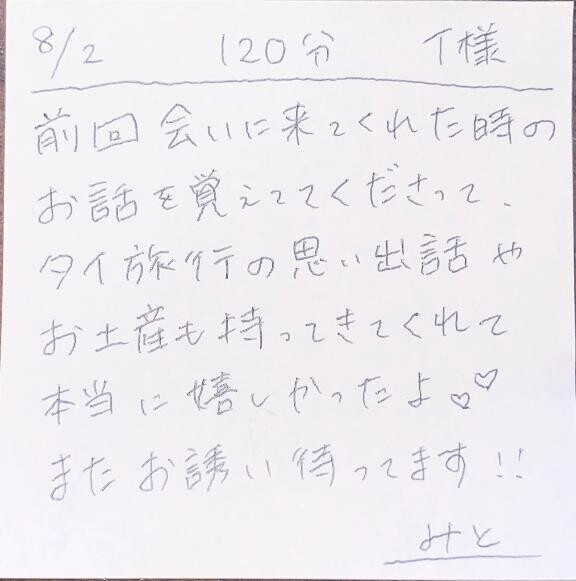 8/2 120分 T様
前回会いに来てくれた時の
お話を覚えててくださって、
タイ旅行の思い出話や
お土産も持ってきてくれて
本当に嬉しかったよ♡♡
またお誘い待ってます!!
みと